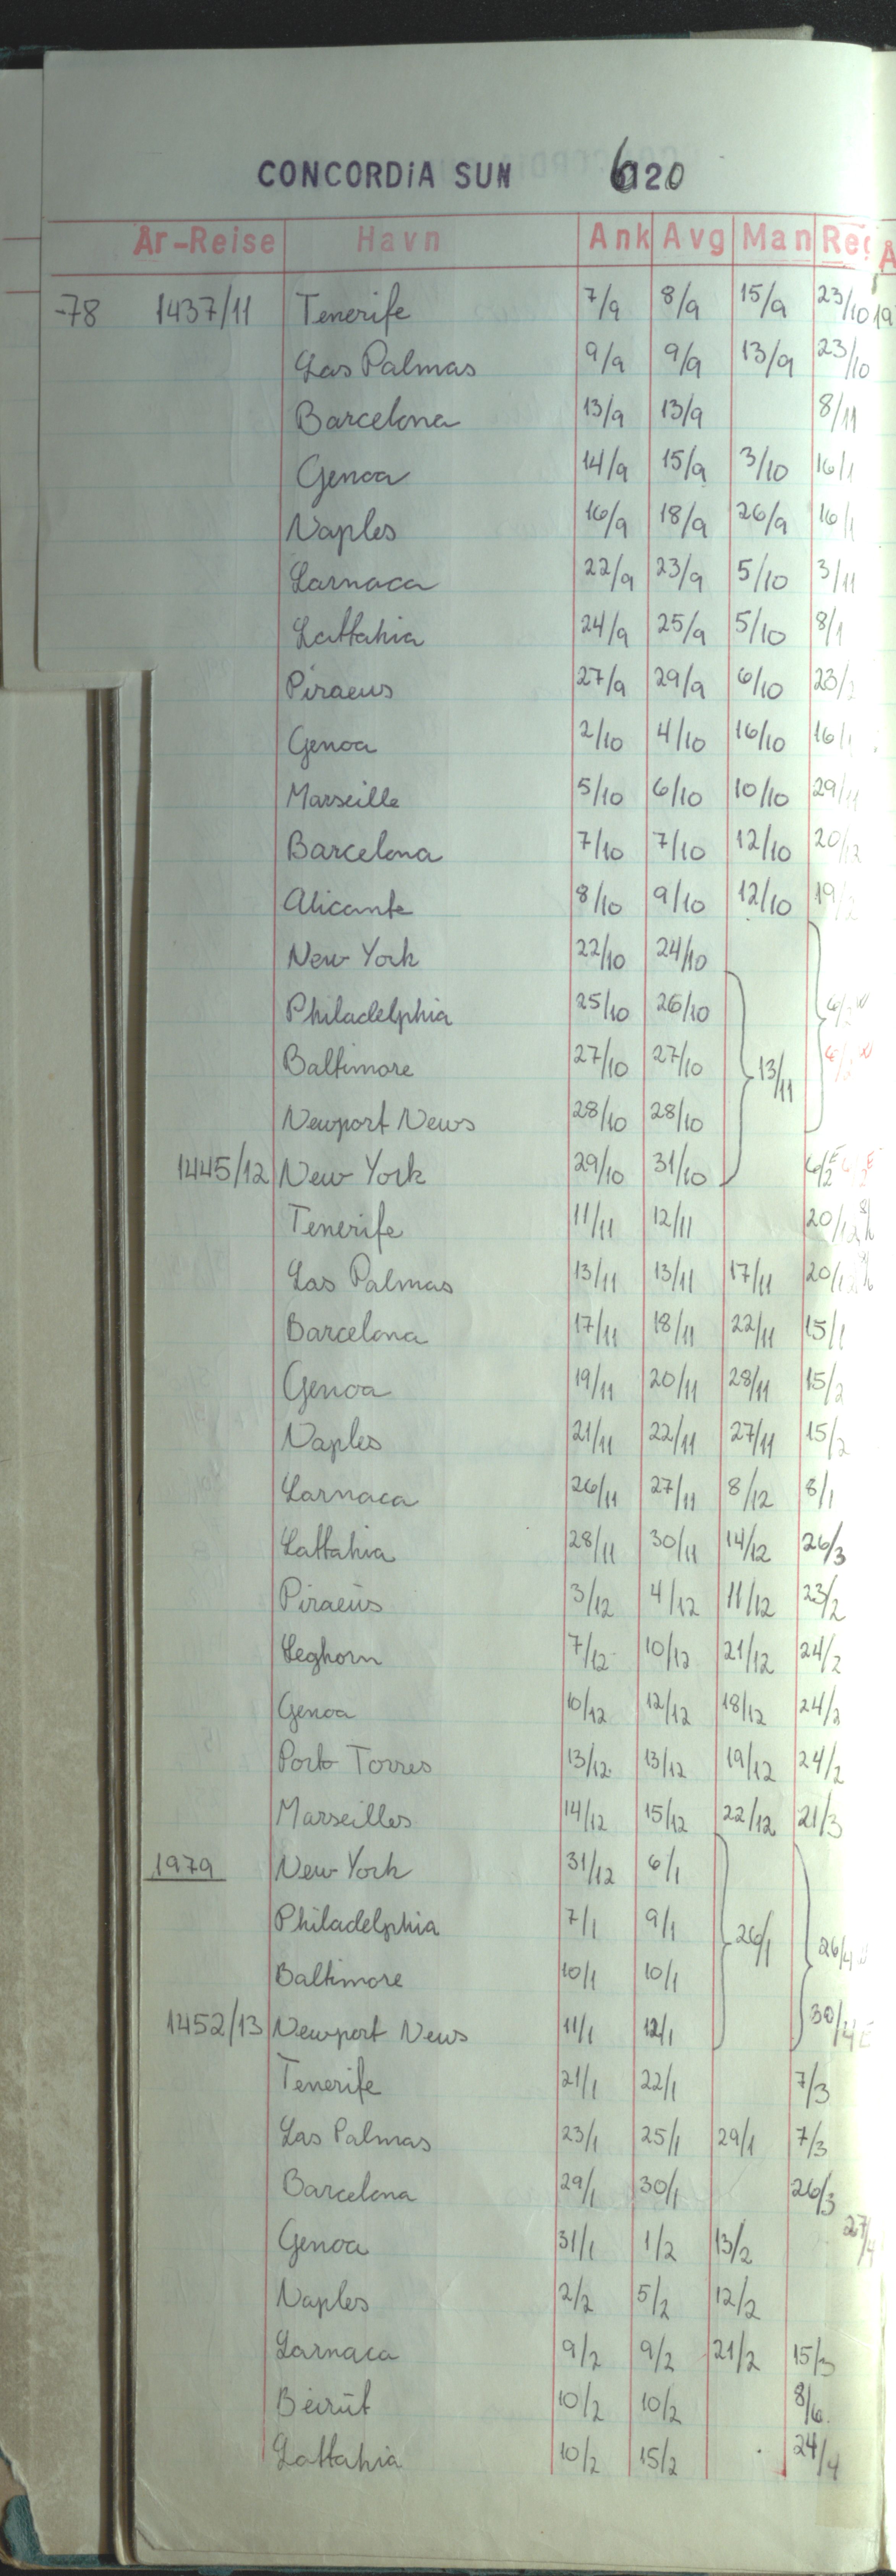 CONCORDiA SUN 6120
År-Reise Havn Ank Avg Man Reg
-78 1437/11 Tenerife 7/9 8/9 15/9 23/10
Las Palmas 9/9 9/9 13/9 23/10
Barcelona 13/9 13/9 8/11
Genoa 14/9 15/9 3/10 16/1
Naples 16/9 18/9 26/9 16/1
Larnaca 22/9 23/9 5/10 3/11
Lattahia 24/9 25/9 5/10 8/1
Piraeus 27/9 29/9 6/10 23/2
Genoa 2/10 4/10 16/10 16/1
Marseille 5/10 6/10 10/10 29/11
Barcelona 7/10 7/10 12/10 20/12
Alicante 8/10 9/10 12/10 19/2
New York 22/10 24/10
Philadelphia 25/10 26/10 6/2 W
Baltimore 27/10 27/10 13/11
Newport News 28/10 28/10
1445/12 New York 29/10 31/10 6/2 E
Tenerife 11/11 12/11 20/12
Las Palmas 13/11 13/11 17/11 20/12
Barcelona 17/11 18/11 22/11 15/1
Genoa 19/11 20/11 28/11 15/2
Naples 21/11 22/11 27/11 15/2
Larnaca 26/11 27/11 8/12 8/1
Lattahia 28/11 30/11 14/12 26/3
Piraeus 3/12 4/12 11/12 23/2
Leghorn 7/12 10/12 21/12 24/2
Genoa 10/12 12/12 18/12 24/2
Porto Torres 13/12 13/12 19/12 24/2
Marseilles 14/12 15/12 22/12 21/3
1979 New York 31/12 6/1
Philadelphia 7/1 9/1 26/1 26/4 W
Baltimore 10/1 10/1
1452/13 Newport News 11/1 12/1 30/4 E
Tenerife 21/1 22/1 7/3
Las Palmas 23/1 25/1 29/1 7/3
Barcelona 29/1 30/1 26/3
Genoa 31/1 1/2 13/2 27/4
Naples 2/2 5/2 12/2
Larnaca 9/2 9/2 21/2 15/3
Beirut 10/2 10/2 8/6
Lattahia 10/2 15/2 24/4